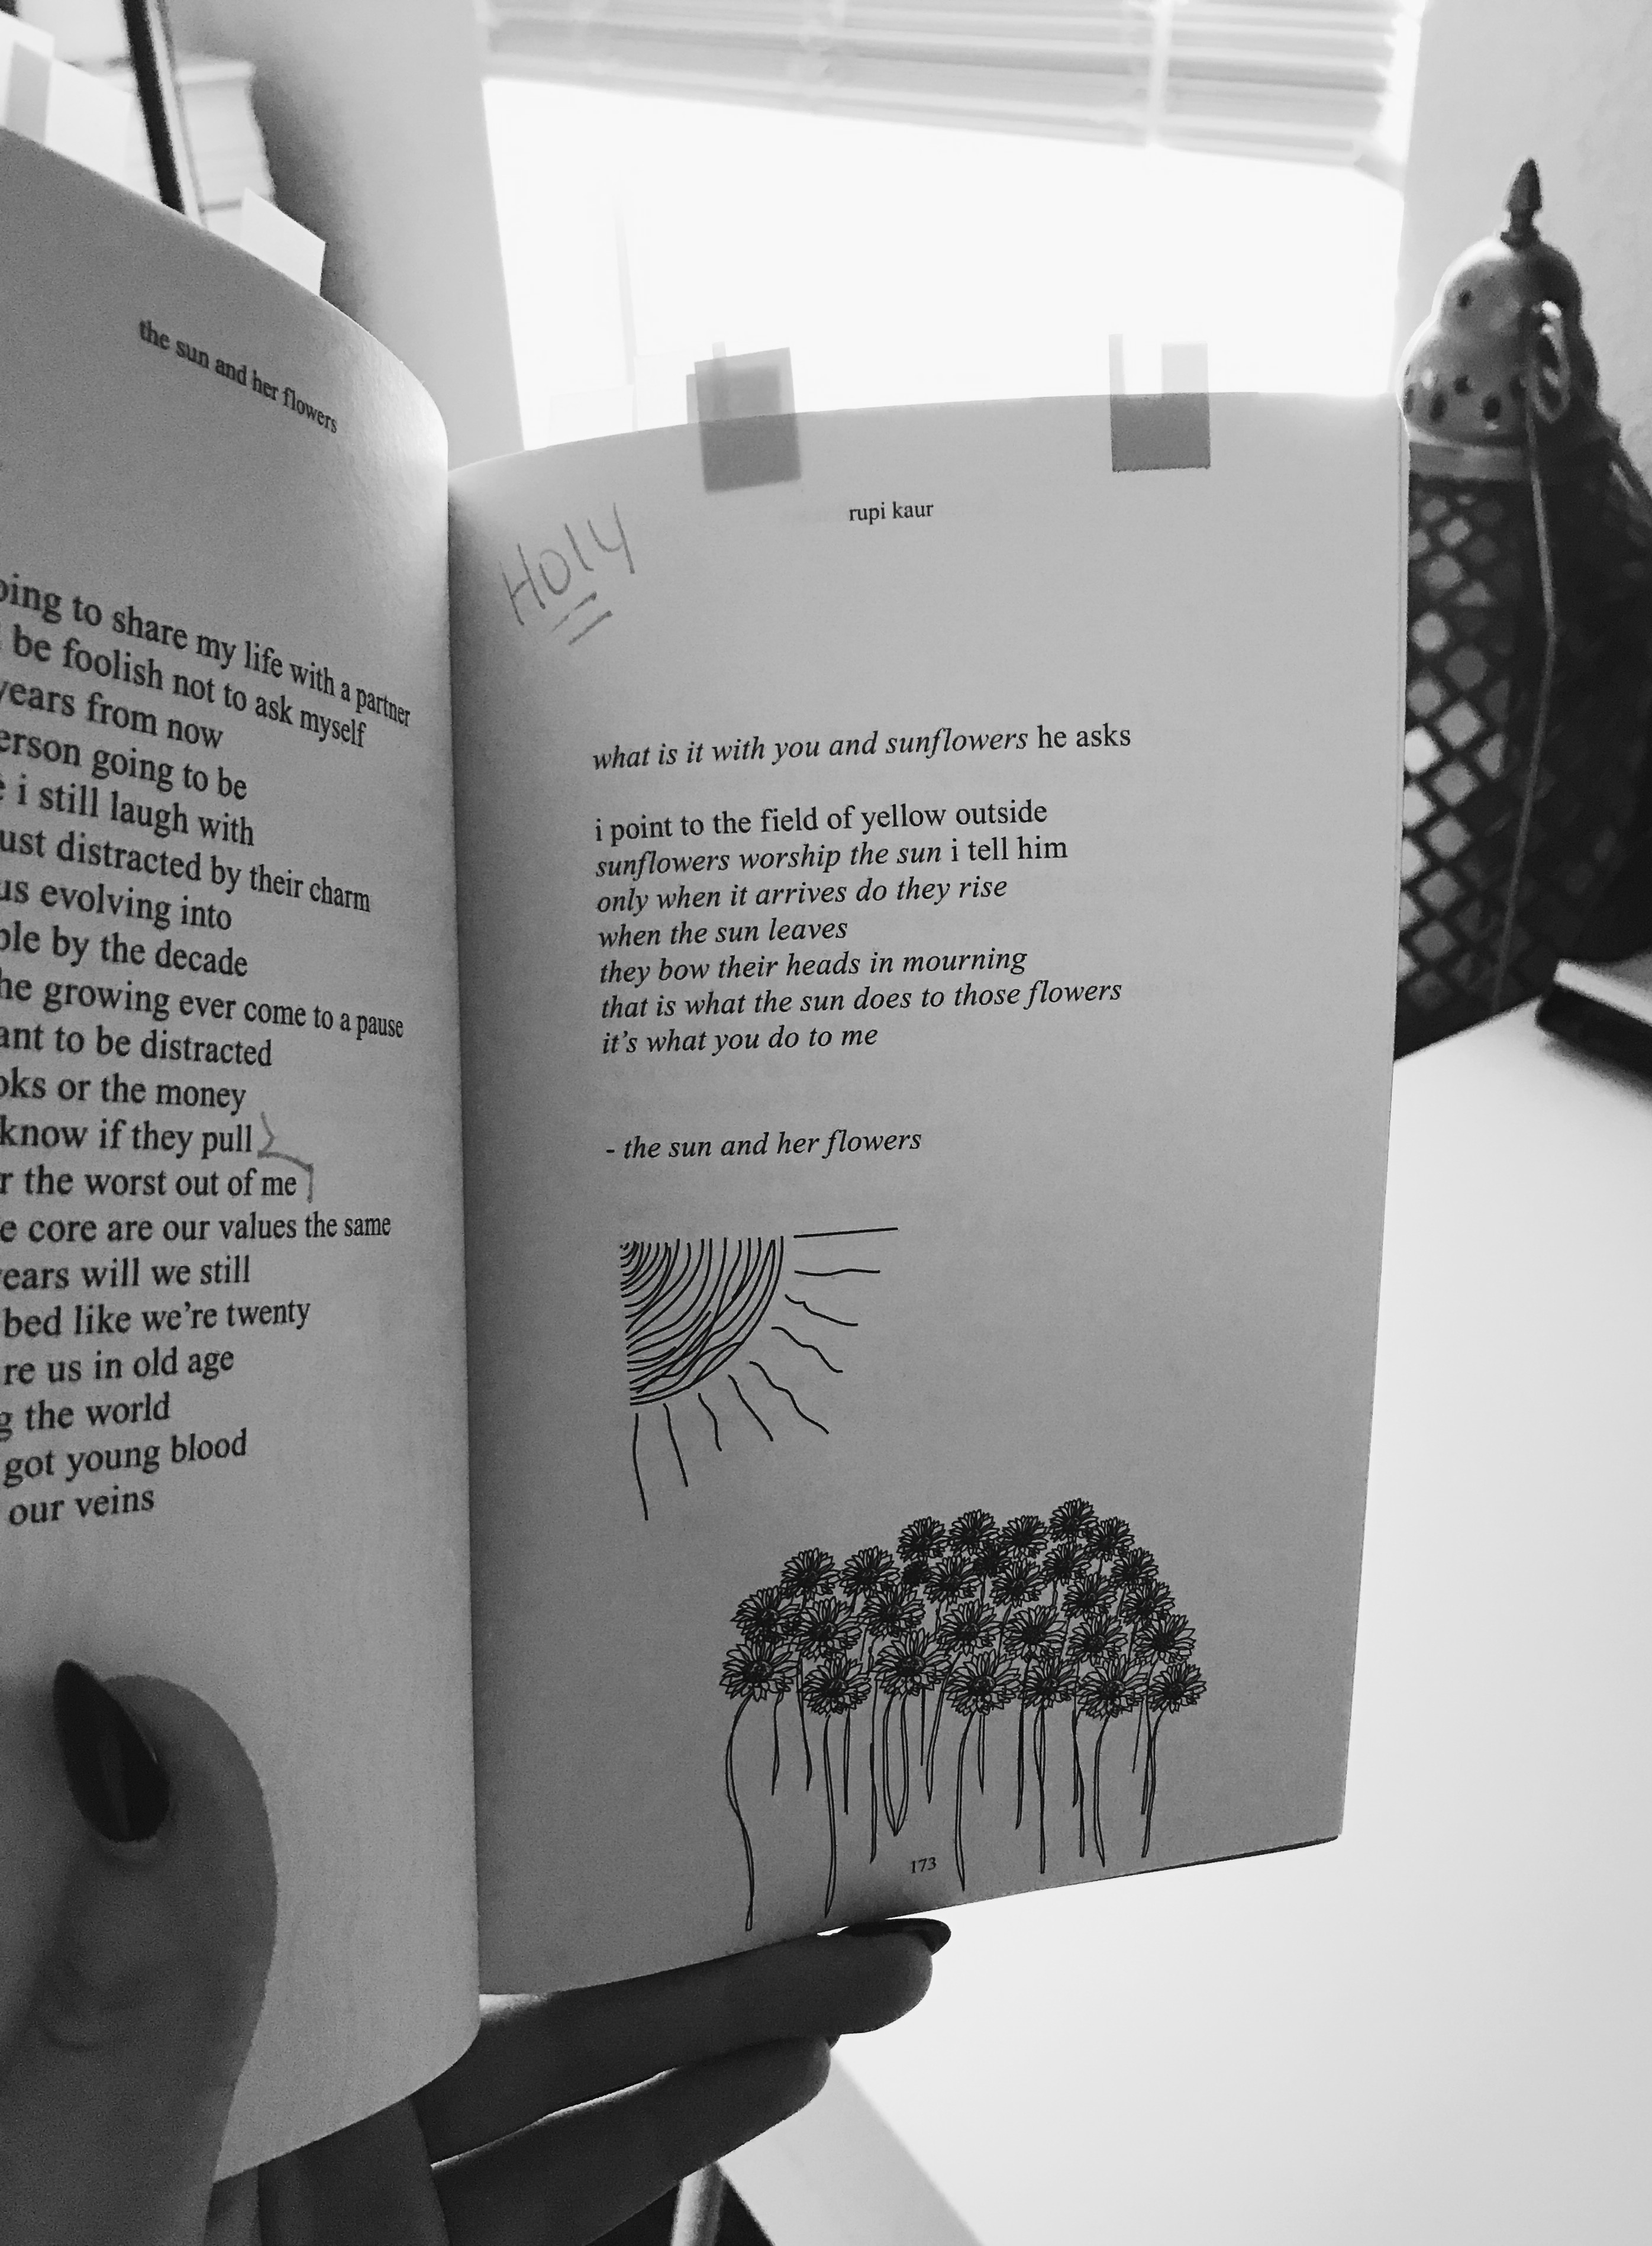 the sun and her flowers
to share my life with a partner
be foolish not to ask myself
years from now
going to be
i still laugh with
distracted by their charm
us evolving into
by the decade
growing ever come to a pause
to be distracted
or the money
know if they pull
the worst out of me
core are our values the same
will we still
bed like we're twenty
us in old age
the world
got young blood
our veins
rupi kaur
Holy
what is it with you and sunflowers he asks
i point to the field of yellow outside
sunflowers worship the sun i tell him
only when it arrives do they rise
when the sun leaves
they bow their heads in mourning
that is what the sun does to those flowers
it's what you do to me
- the sun and her flowers
173